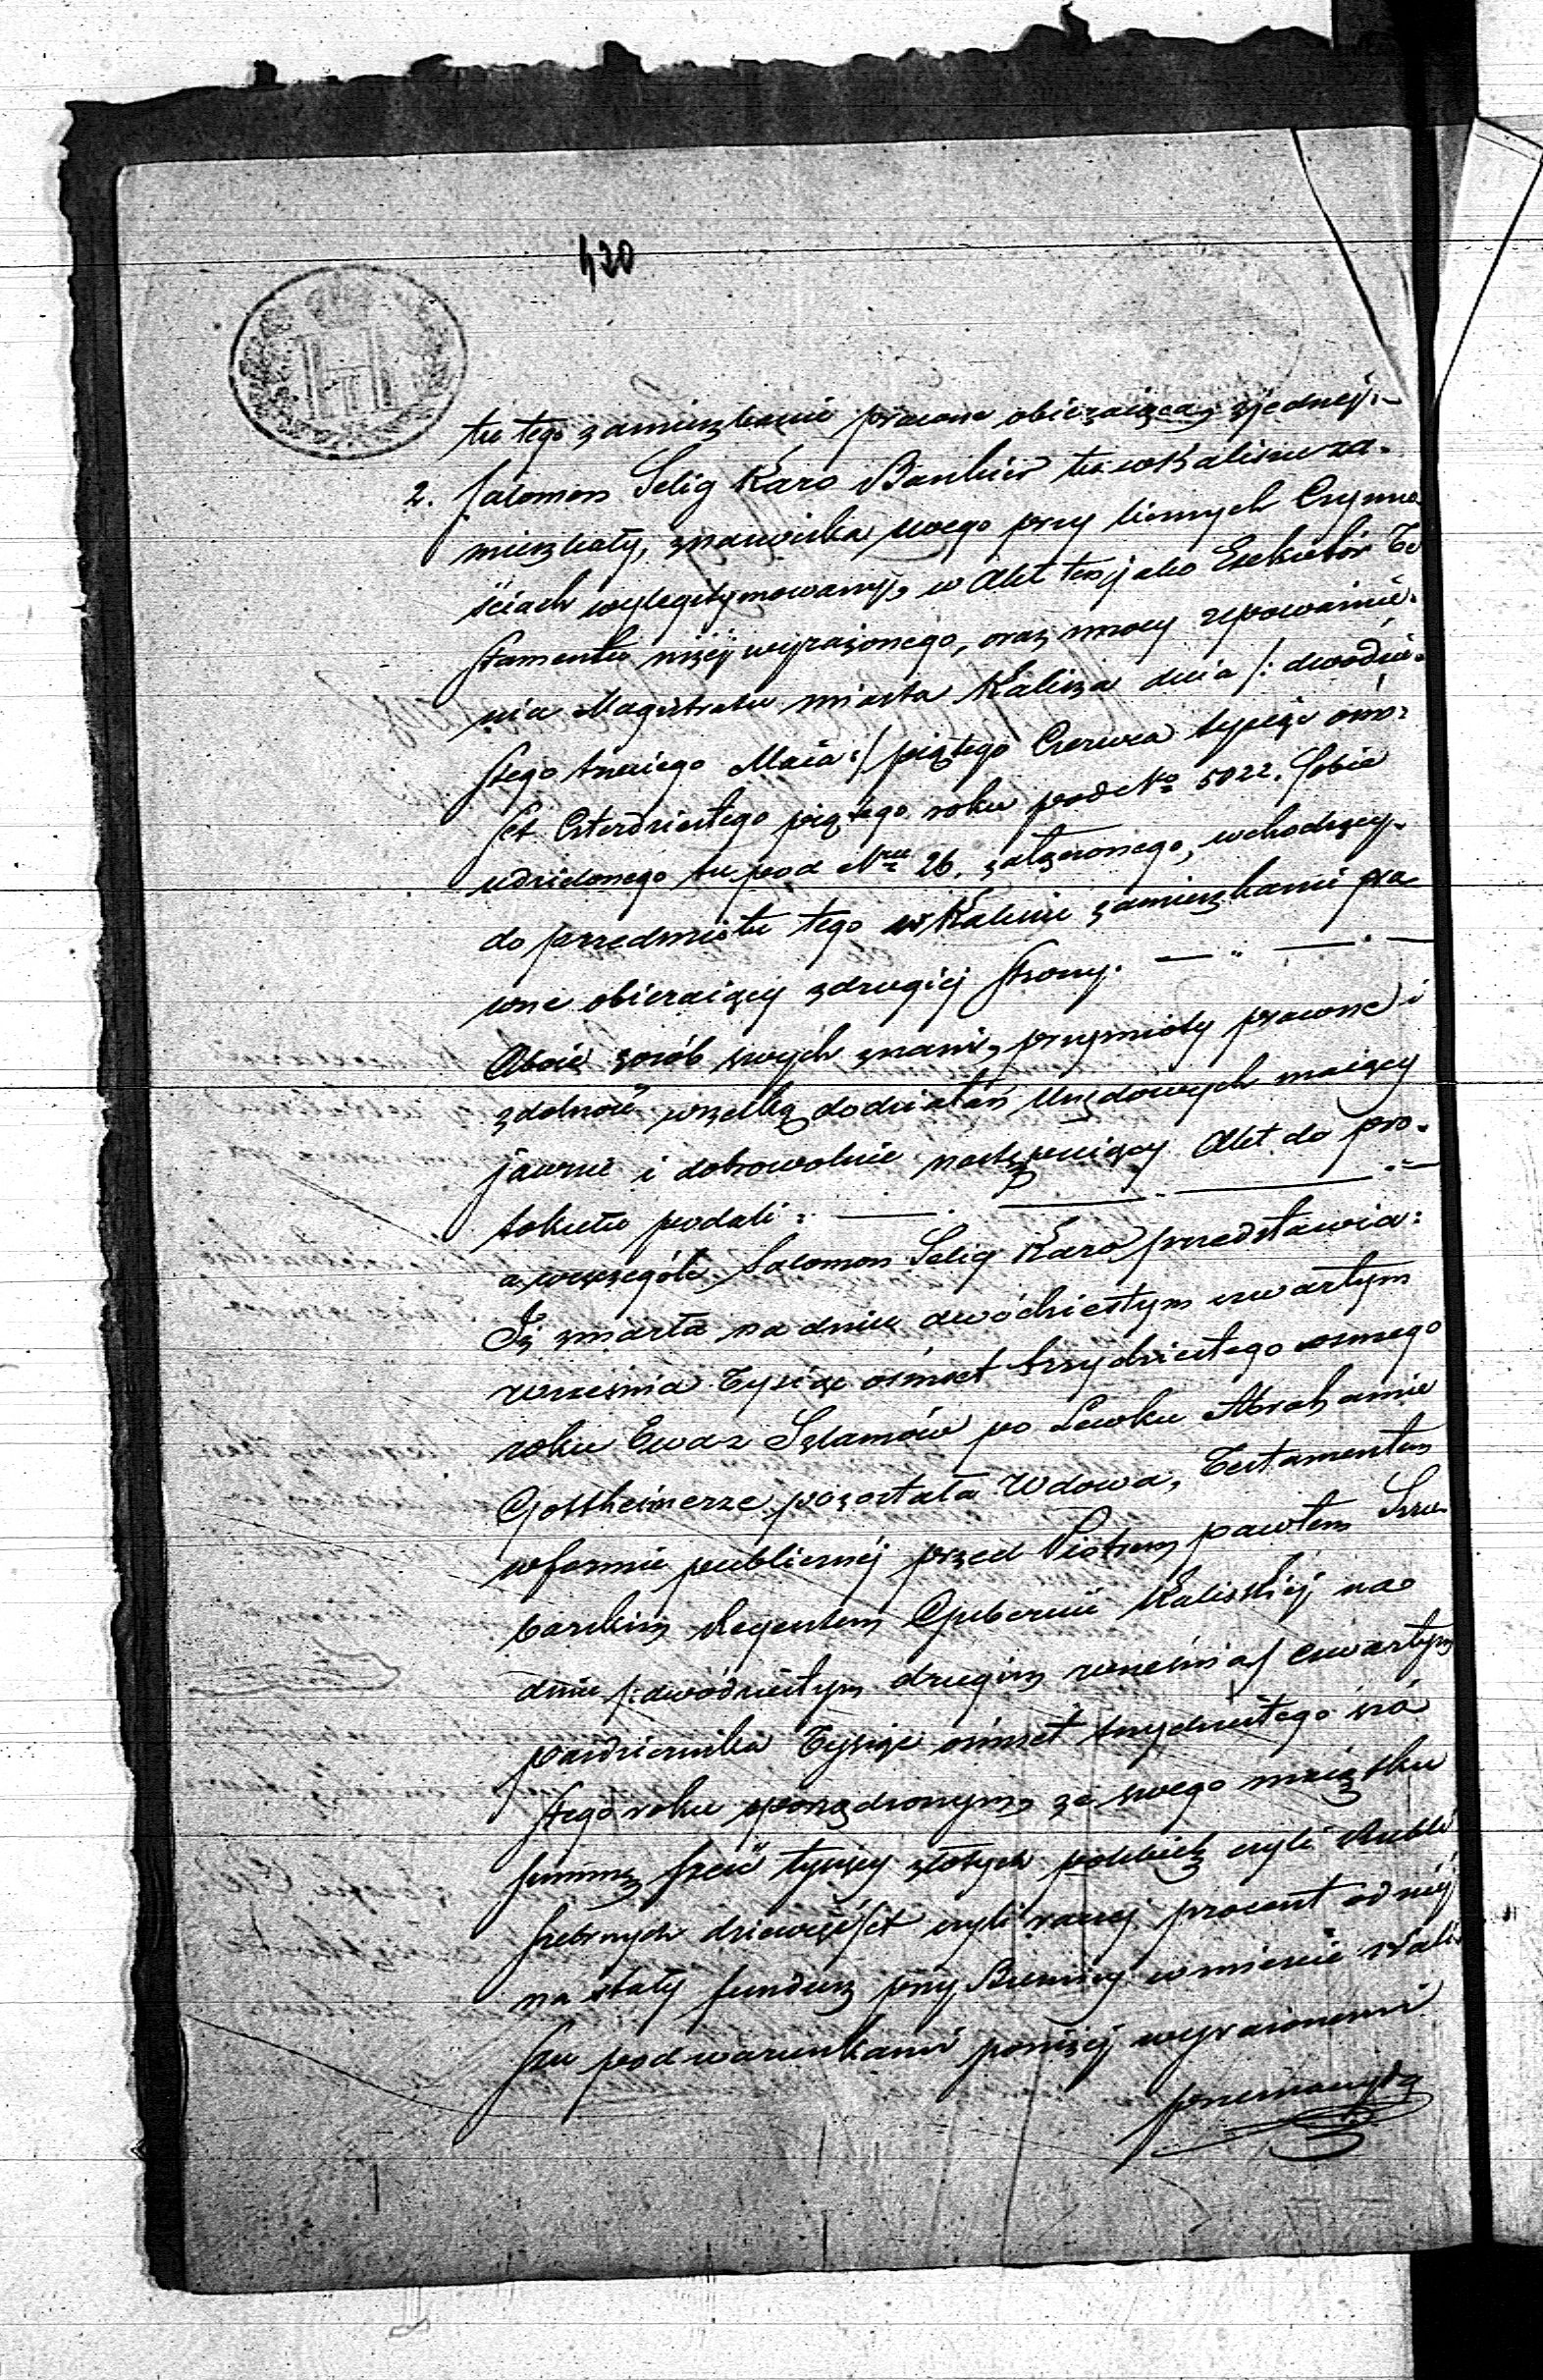 420
tu tego zamieszkanie prawne obieraiąca, zjednéj.
2. Salomon Selig Karo Bankier tu w Kaliszu za-
mieszkały, znazwiska swego przy licznych Czynno
ściach wylegitymowany, w Akt ten jako Exekutór Te
stamentu niżéj wyrażonego, oraz zmocy upoważnie-
nia Magistratu miasta Kalisza dnia /: dwódzie-
stego trzeciego Maia :/ piątego Czerwca tysiąc ośm-
set Czterdziestego piątego roku pod No 5022. Sobie
udzielonego tu pod Nrm 26. załączonego, wchodzący
do przedmiotu tego w Kaliszu zamieszkanie pra
wne obieraiący zdrugiéj strony.
Oboie zosób swych znani, przymioty prawne i
zdolność wszelką do działań Urzędowych maiący
jawnie i dobrowolnie następuiący Akt do pro-
tokułu podali:
a wszczególe Salomon Selig Karo przedstawia:
Iż zmarła na dniu dwódziestym czwartym
września Tysiąc ośmset trzydziestego ósmego
roku Ewa z Szlamów po Lewku Abrahamie
Gottheimerze pozostała Wdowa, Testamentem
wformie publicznéj przed Piotrem pawłem
Regentem Gubernii Kaliskiéj na
dniu /: dwódziestym drugim września / czwartym
pazdziernika Tysiąc ośmset trzydziestego szó
stego roku sporządzonym, ze swego maiątku
summę sześć tysięcy złotych polskich czyli Rubli
srebrnych dziewięćset czyli raczej procent od niéj
na stały fundusz przy Bużnicy w mieście Kali
szu pod warunkami poniżéj wyrażonemi
przeznaczyła